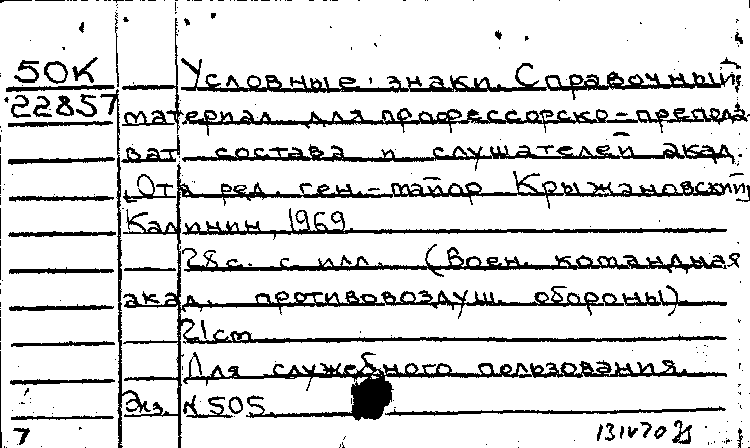 50К Условные знаки. Справочный
22857 материал для профессорско-препода-
ват состава и слушателей акад.
[Отв ред. ген.-майор Крыжановский]
Калинин, 1969.
28с. с илл. (Воен. командная
акад. противовоздуш. обороны)
21cm
Для служебного пользования.
Экз. N 505.
7 13IV70